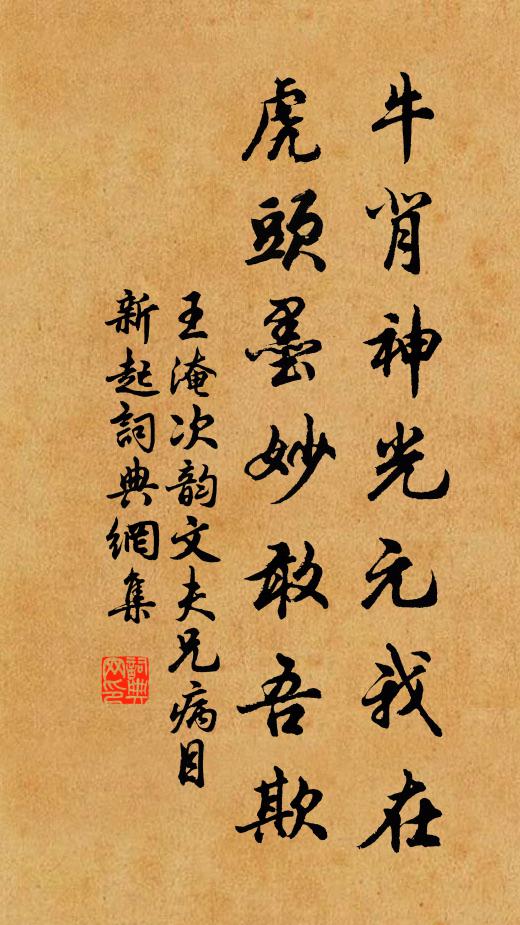 牛背神光元我在
虎頭墨妙敢吾欺
王淹次韵文夫兄病目
新起詞典網集
詞典
网印